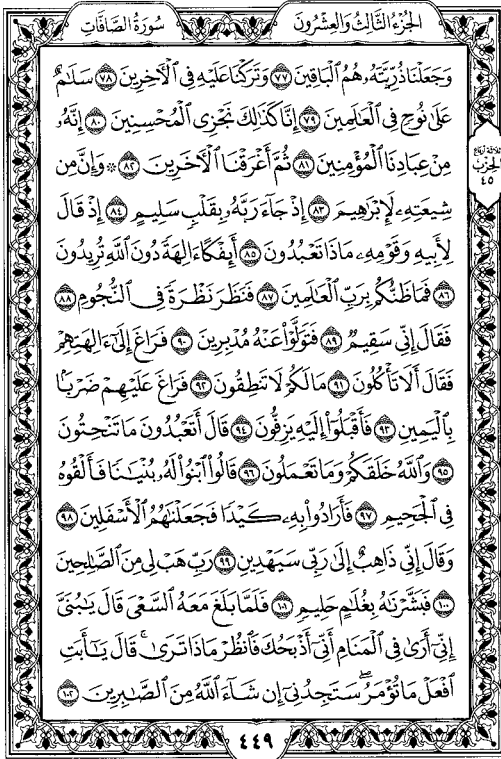 الجزء الثالث والعشرون
سورة الصافات
وَجَعَلْنَا ذُرِّيَّتَهُۥ هُمُ ٱلْبَاقِينَ ٧٧ وَتَرَكْنَا عَلَيْهِ فِى ٱلْأَخِرِينَ ٧٨ سَلَٰمٌ
عَلَىٰ نُوحٍ فِى ٱلْعَٰلَمِينَ ٧٩ إِنَّا كَذَٰلِكَ نَجْزِى ٱلْمُحْسِنِينَ ٨٠ إِنَّهُۥ
مِنْ عِبَادِنَا ٱلْمُؤْمِنِينَ ٨١ ثُمَّ أَغْرَقْنَا ٱلْأَخَرِينَ ٨٢ ۞ وَإِنَّ مِن
ثلاثة أرباع
الحزب
٤٥
شِيعَتِهِۦ لَإِبْرَٰهِيمَ ٨٣ إِذْ جَآءَ رَبَّهُۥ بِقَلْبٍ سَلِيمٍ ٨٤ إِذْ قَالَ
لِأَبِيهِ وَقَوْمِهِۦ مَاذَا تَعْبُدُونَ ٨٥ أَئِفْكًا ءَالِهَةً دُونَ ٱللَّهِ تُرِيدُونَ
٨٦ فَمَا ظَنُّكُم بِرَبِّ ٱلْعَٰلَمِينَ ٨٧ فَنَظَرَ نَظْرَةً فِى ٱلنُّجُومِ ٨٨
فَقَالَ إِنِّى سَقِيمٌ ٨٩ فَتَوَلَّوْا۟ عَنْهُ مُدْبِرِينَ ٩٠ فَرَاغَ إِلَىٰٓ ءَالِهَتِهِمْ
فَقَالَ أَلَا تَأْكُلُونَ ٩١ مَا لَكُمْ لَا تَنطِقُونَ ٩٢ فَرَاغَ عَلَيْهِمْ ضَرْبًۢا
بِٱلْيَمِينِ ٩٣ فَأَقْبَلُوٓا۟ إِلَيْهِ يَزِفُّونَ ٩٤ قَالَ أَتَعْبُدُونَ مَا تَنْحِتُونَ
٩٥ وَٱللَّهُ خَلَقَكُمْ وَمَا تَعْمَلُونَ ٩٦ قَالُوا۟ ٱبْنُوا۟ لَهُۥ بُنْيَٰنًا فَأَلْقُوهُ
فِى ٱلْجَحِيمِ ٩٧ فَأَرَادُوا۟ بِهِۦ كَيْدًا فَجَعَلْنَٰهُمُ ٱلْأَسْفَلِينَ ٩٨
وَقَالَ إِنِّى ذَاهِبٌ إِلَىٰ رَبِّى سَيَهْدِينِ ٩٩ رَبِّ هَبْ لِى مِنَ ٱلصَّٰلِحِينَ
١٠٠ فَبَشَّرْنَٰهُ بِغُلَٰمٍ حَلِيمٍ ١٠١ فَلَمَّا بَلَغَ مَعَهُ ٱلسَّعْىَ قَالَ يَٰبُنَىَّ
إِنِّىٓ أَرَىٰ فِى ٱلْمَنَامِ أَنِّىٓ أَذْبَحُكَ فَٱنظُرْ مَاذَا تَرَىٰ ۚ قَالَ يَٰٓأَبَتِ
ٱفْعَلْ مَا تُؤْمَرُ ۖ سَتَجِدُنِىٓ إِن شَآءَ ٱللَّهُ مِنَ ٱلصَّٰبِرِينَ ١٠٢
٤٤٩